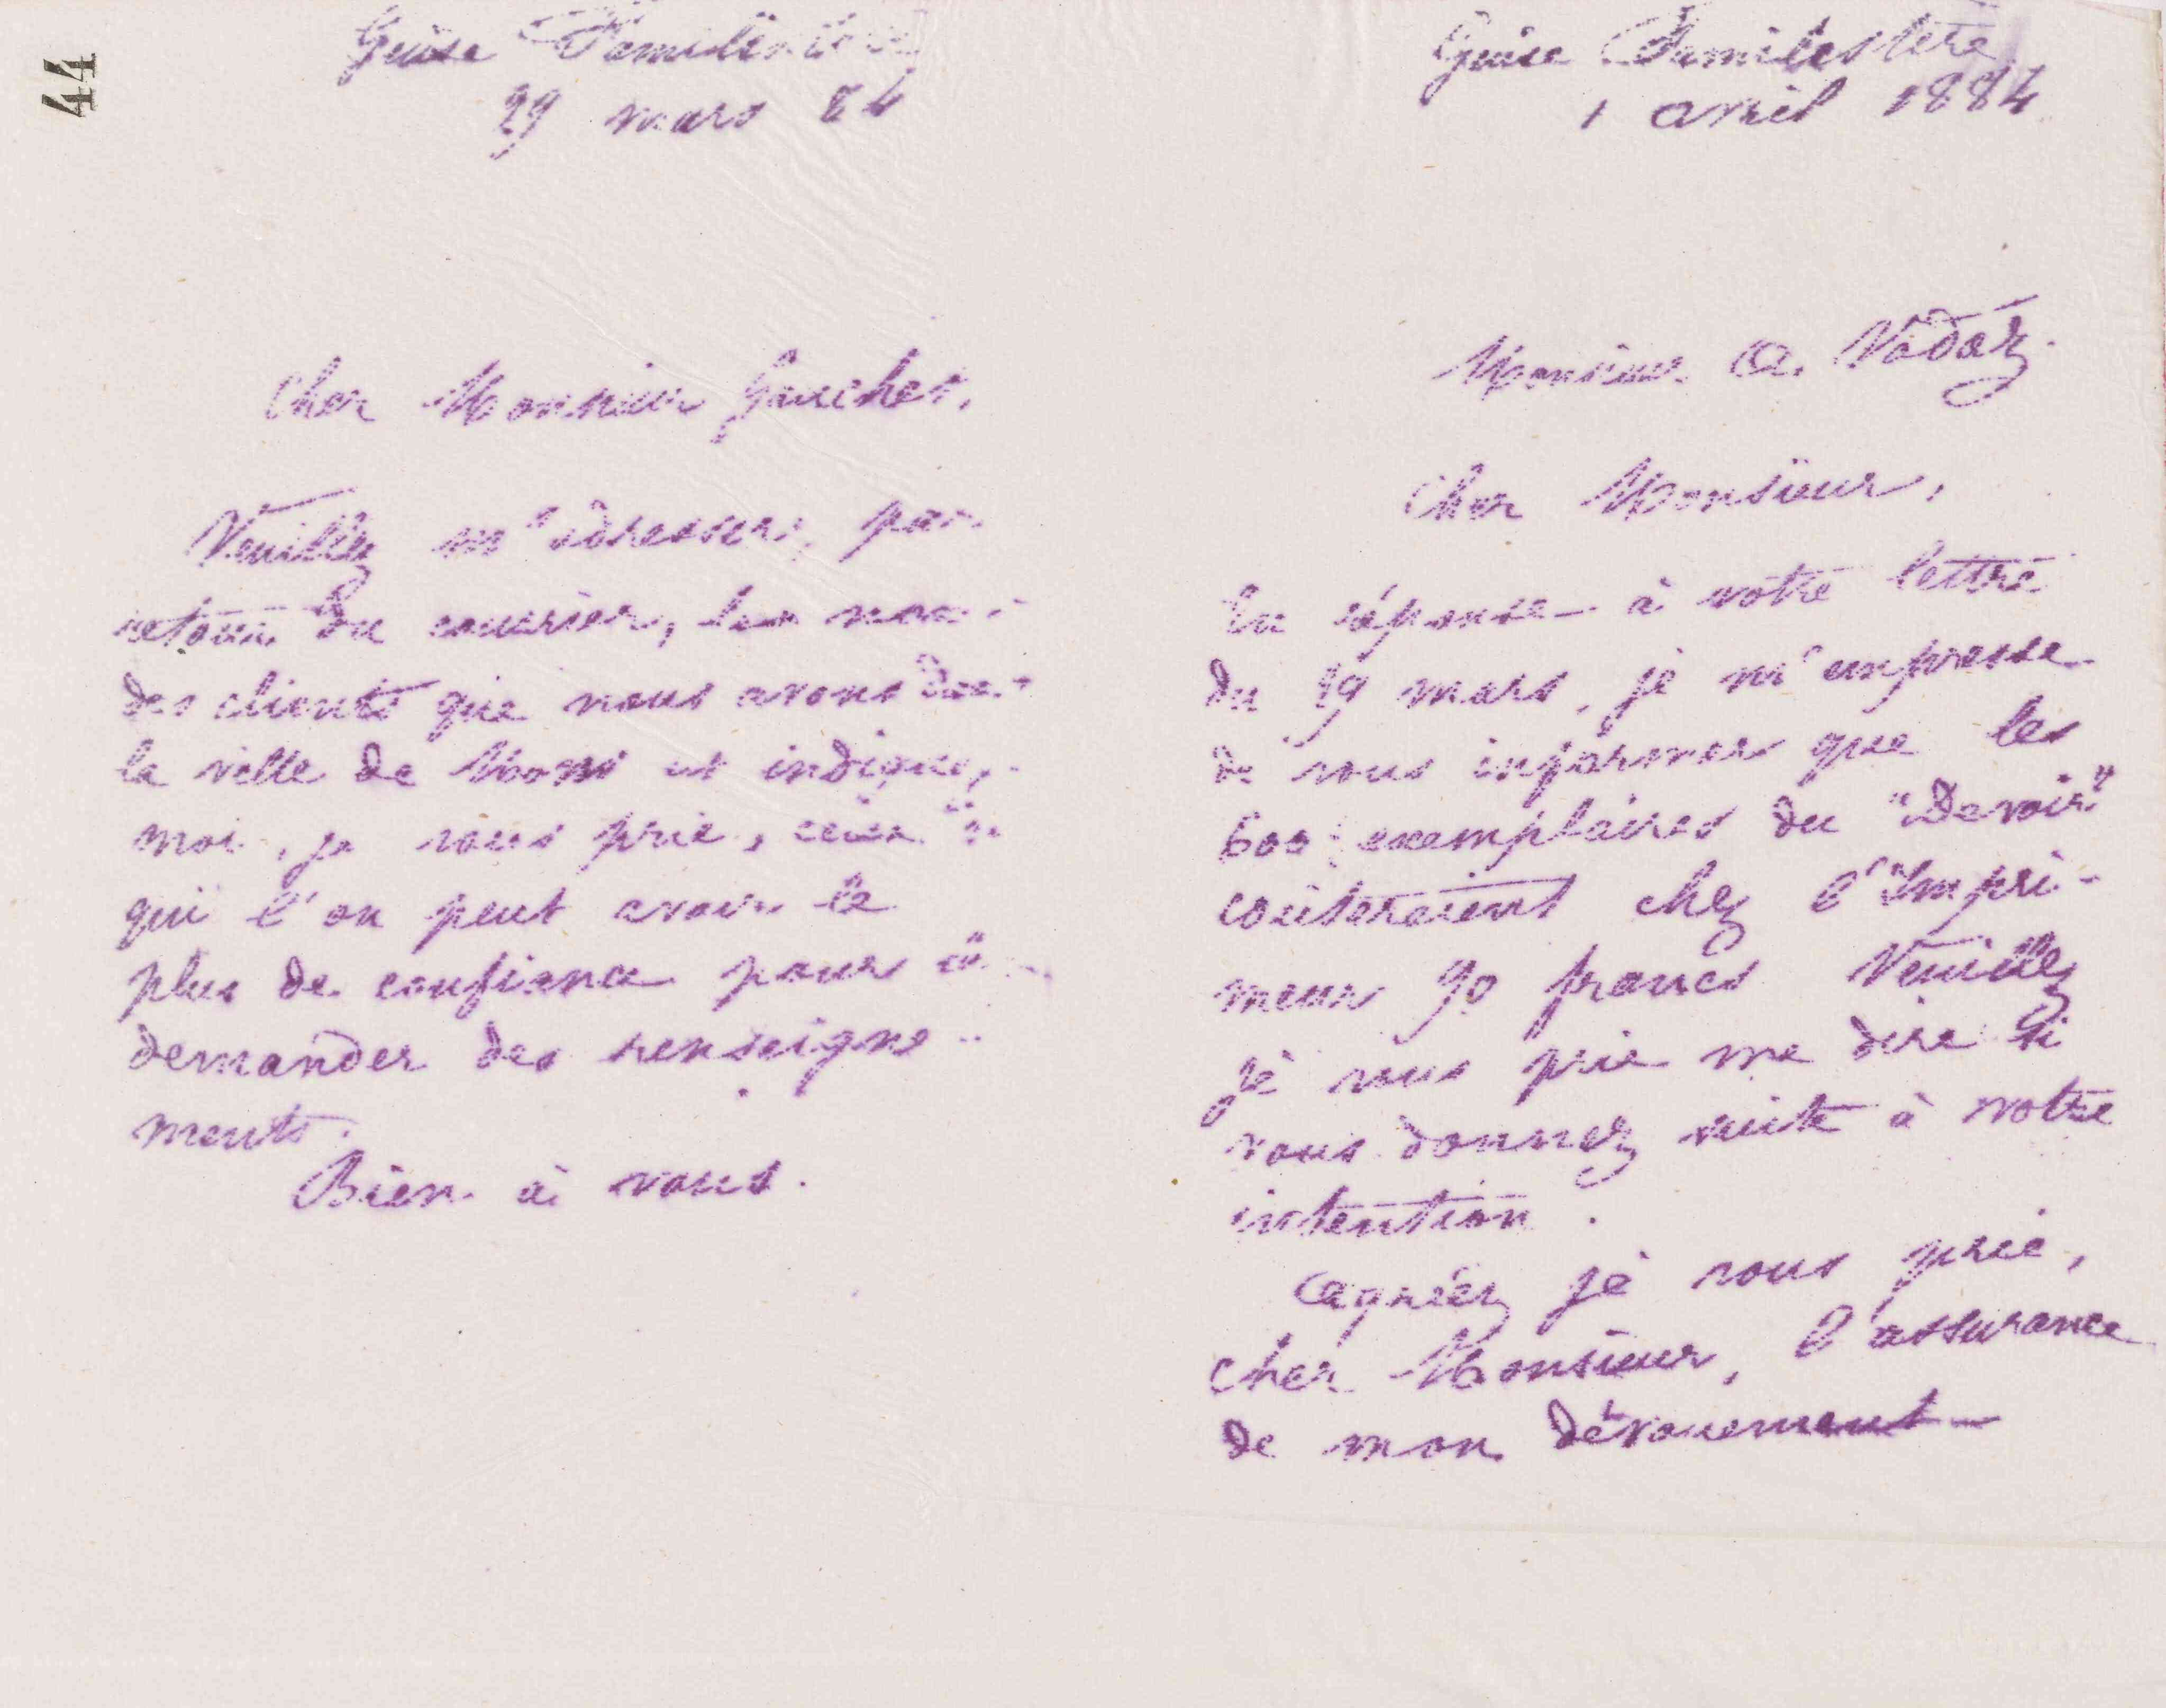 44
Guise Familistère
29 mars 84
Cher Monsieur Gauchet,
Veuillez m'adresser, par
retour du courrier, les noms
des clients que nous avons dans
la ville de Mons et indiquez
moi, je vous prie, ceux à
qui l'on peut avoir le
plus de confiance pour
demander des renseigne-
ments.
Bien à vous.
Guise Familistère
1 avril 1884
Monsieur A.
Cher Monsieur,
En réponse à votre lettre
du 29 mars, je m'empresse
de vous informer que les
600 exemplaires du "Devoir"
coûteraient chez l'Impri-
meur 90 francs Veuillez
je vous prie me dire si
vous donnez suite à votre
intention.
Agréez je vous prie,
cher Monsieur, l'assurance
de mon dévouement